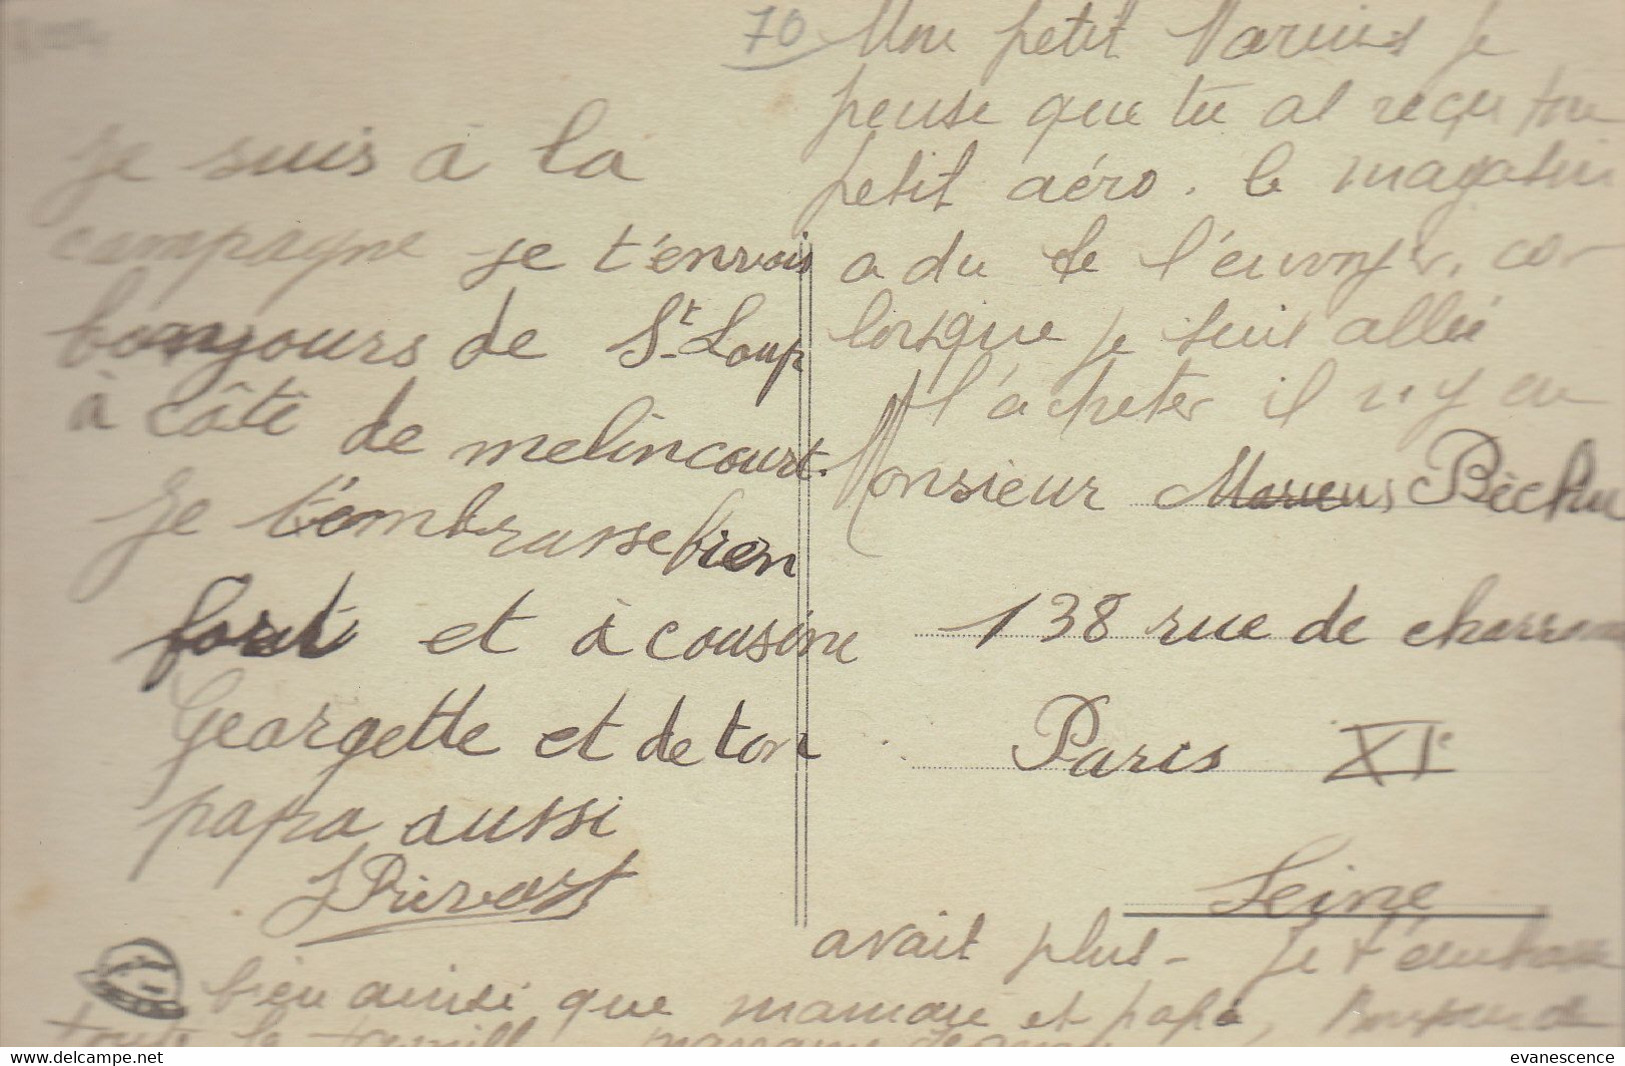 je suis à la
campagne je t'envois
bonjours de St Loup
à côté de melincourt.
je t'embrasse bien
fort et à cousine
Geargette et de ton
papa aussi
J Prévost
70 Mon petit Marius je
pense que tu as reçu ton
petit aéro. le magasin
a du te l'envoyer, car
lorsque je suis allée
l'acheter il n'y en
Monsieur Marius Béchu
138 rue de
Paris XIe
Seine
avait plus - Je t'embrasse
bien ainsi que maman et papa, Bonjour de
toute la famille
evanescence